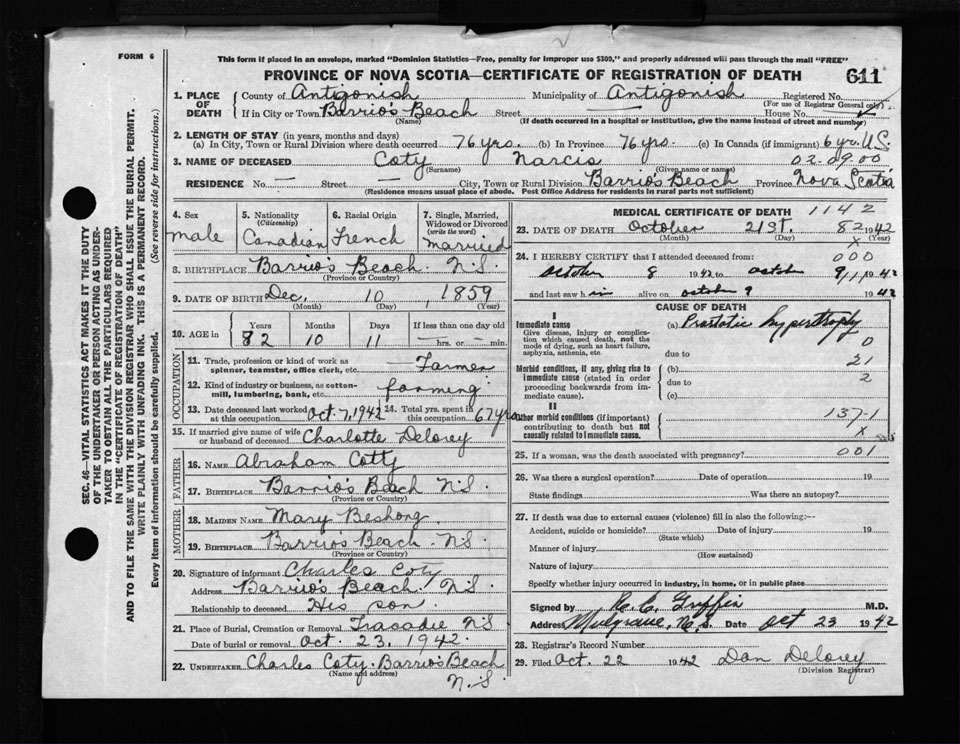 FORM 6
This form if placed in an envelope, marked "Dominion Statistics—Free, penalty for improper use $300," and properly addressed will pass through the mail "FREE"
PROVINCE OF NOVA SCOTIA—CERTIFICATE OF REGISTRATION OF DEATH 611
1. PLACE OF DEATH
County of Antigonish Municipality of Antigonish Registered No.
(For use of Registrar General only)
If in City or Town Barrio's Beach Street — House No.
(Name) (If death occurred in a hospital or institution, give the name instead of street and number)
2. LENGTH OF STAY (in years, months and days)
(a) In City, Town or Rural Division where death occurred 76 yrs. (b) In Province 76 yrs. (c) In Canada (if immigrant) 6 yr. U.S.
3. NAME OF DECEASED Coty Narcis 02-09-00
(Surname) (Given name or names)
RESIDENCE No. — Street — City, Town or Rural Division Barrio's Beach Province Nova Scotia
(Residence means usual place of abode. Post Office Address for residents in rural parts not sufficient)
4. Sex
male
5. Nationality
(Citizenship)
Canadian
6. Racial Origin
French
7. Single, Married, Widowed or Divorced
(write the word)
married
8. BIRTHPLACE Barrio's Beach. N.S.
(Province or Country)
9. DATE OF BIRTH Dec. 10 1859
(Month) (Day) (Year)
10. AGE in
Years Months Days If less than one day old
82 10 11 — hrs. or — min.
OCCUPATION
11. Trade, profession or kind of work as spinner, teamster, office clerk, etc. Farmer
12. Kind of industry or business, as cotton-mill, lumbering, bank, etc. farming
13. Date deceased last worked at this occupation Oct 7, 1942 14. Total yrs. spent in this occupation 67 yrs
15. If married give name of wife or husband of deceased Charlotte Delorey
FATHER
16. NAME Abraham Cotty
17. BIRTHPLACE Barrio's Beach N.S.
(Province or Country)
MOTHER
18. MAIDEN NAME Mary Beshong
19. BIRTHPLACE Barrio's Beach. N.S.
(Province or Country)
20. Signature of informant Charles Coty
Address Barrio's Beach N.S.
Relationship to deceased His son.
21. Place of Burial, Cremation or Removal Tracadie N.S.
Date of burial or removal Oct. 23, 1942.
22. UNDERTAKER Charles Coty. Barrio's Beach
(Name and address) N.S.
MEDICAL CERTIFICATE OF DEATH 1142
23. DATE OF DEATH October 21st. 82 1942
(Month) (Day) x (Year)
24. I HEREBY CERTIFY that I attended deceased from: 000
October 8 1942 to October 9 1942
and last saw h im alive on October 9 1942
CAUSE OF DEATH
I
Immediate cause
Give disease, injury or complication which caused death, not the mode of dying, such as heart failure, asphyxia, asthenia, etc.
(a) Prostatic hypertrophy
0
due to
21
Morbid conditions, if any, giving rise to immediate cause (stated in order proceeding backwards from immediate cause).
(b)
due to 2
(c)
II
Other morbid conditions (if important) contributing to death but not causally related to immediate cause.
137-1
x
25. If a woman, was the death associated with pregnancy? 001
26. Was there a surgical operation? Date of operation 19
State findings Was there an autopsy?
27. If death was due to external causes (violence) fill in also the following:—
Accident, suicide or homicide? Date of injury 19
(State which)
Manner of injury
(How sustained)
Nature of injury
Specify whether injury occurred in industry, in home, or in public place
Signed by R. C. Griffin M.D.
Address Mulgrave, N.S. Date Oct 23 1942
28. Registrar's Record Number
29. Filed Oct. 22 1942 Dan Delorey
(Division Registrar)
SEC. 46—VITAL STATISTICS ACT MAKES IT THE DUTY
OF THE UNDERTAKER OR PERSON ACTING AS UNDER-
TAKER TO OBTAIN ALL THE PARTICULARS REQUIRED
IN THE "CERTIFICATE OF REGISTRATION OF DEATH"
AND TO FILE THE SAME WITH THE DIVISION REGISTRAR WHO SHALL ISSUE THE BURIAL PERMIT.
WRITE PLAINLY WITH UNFADING INK. THIS IS A PERMANENT RECORD.
Every item of Information should be carefully supplied. (See reverse side for instructions.)